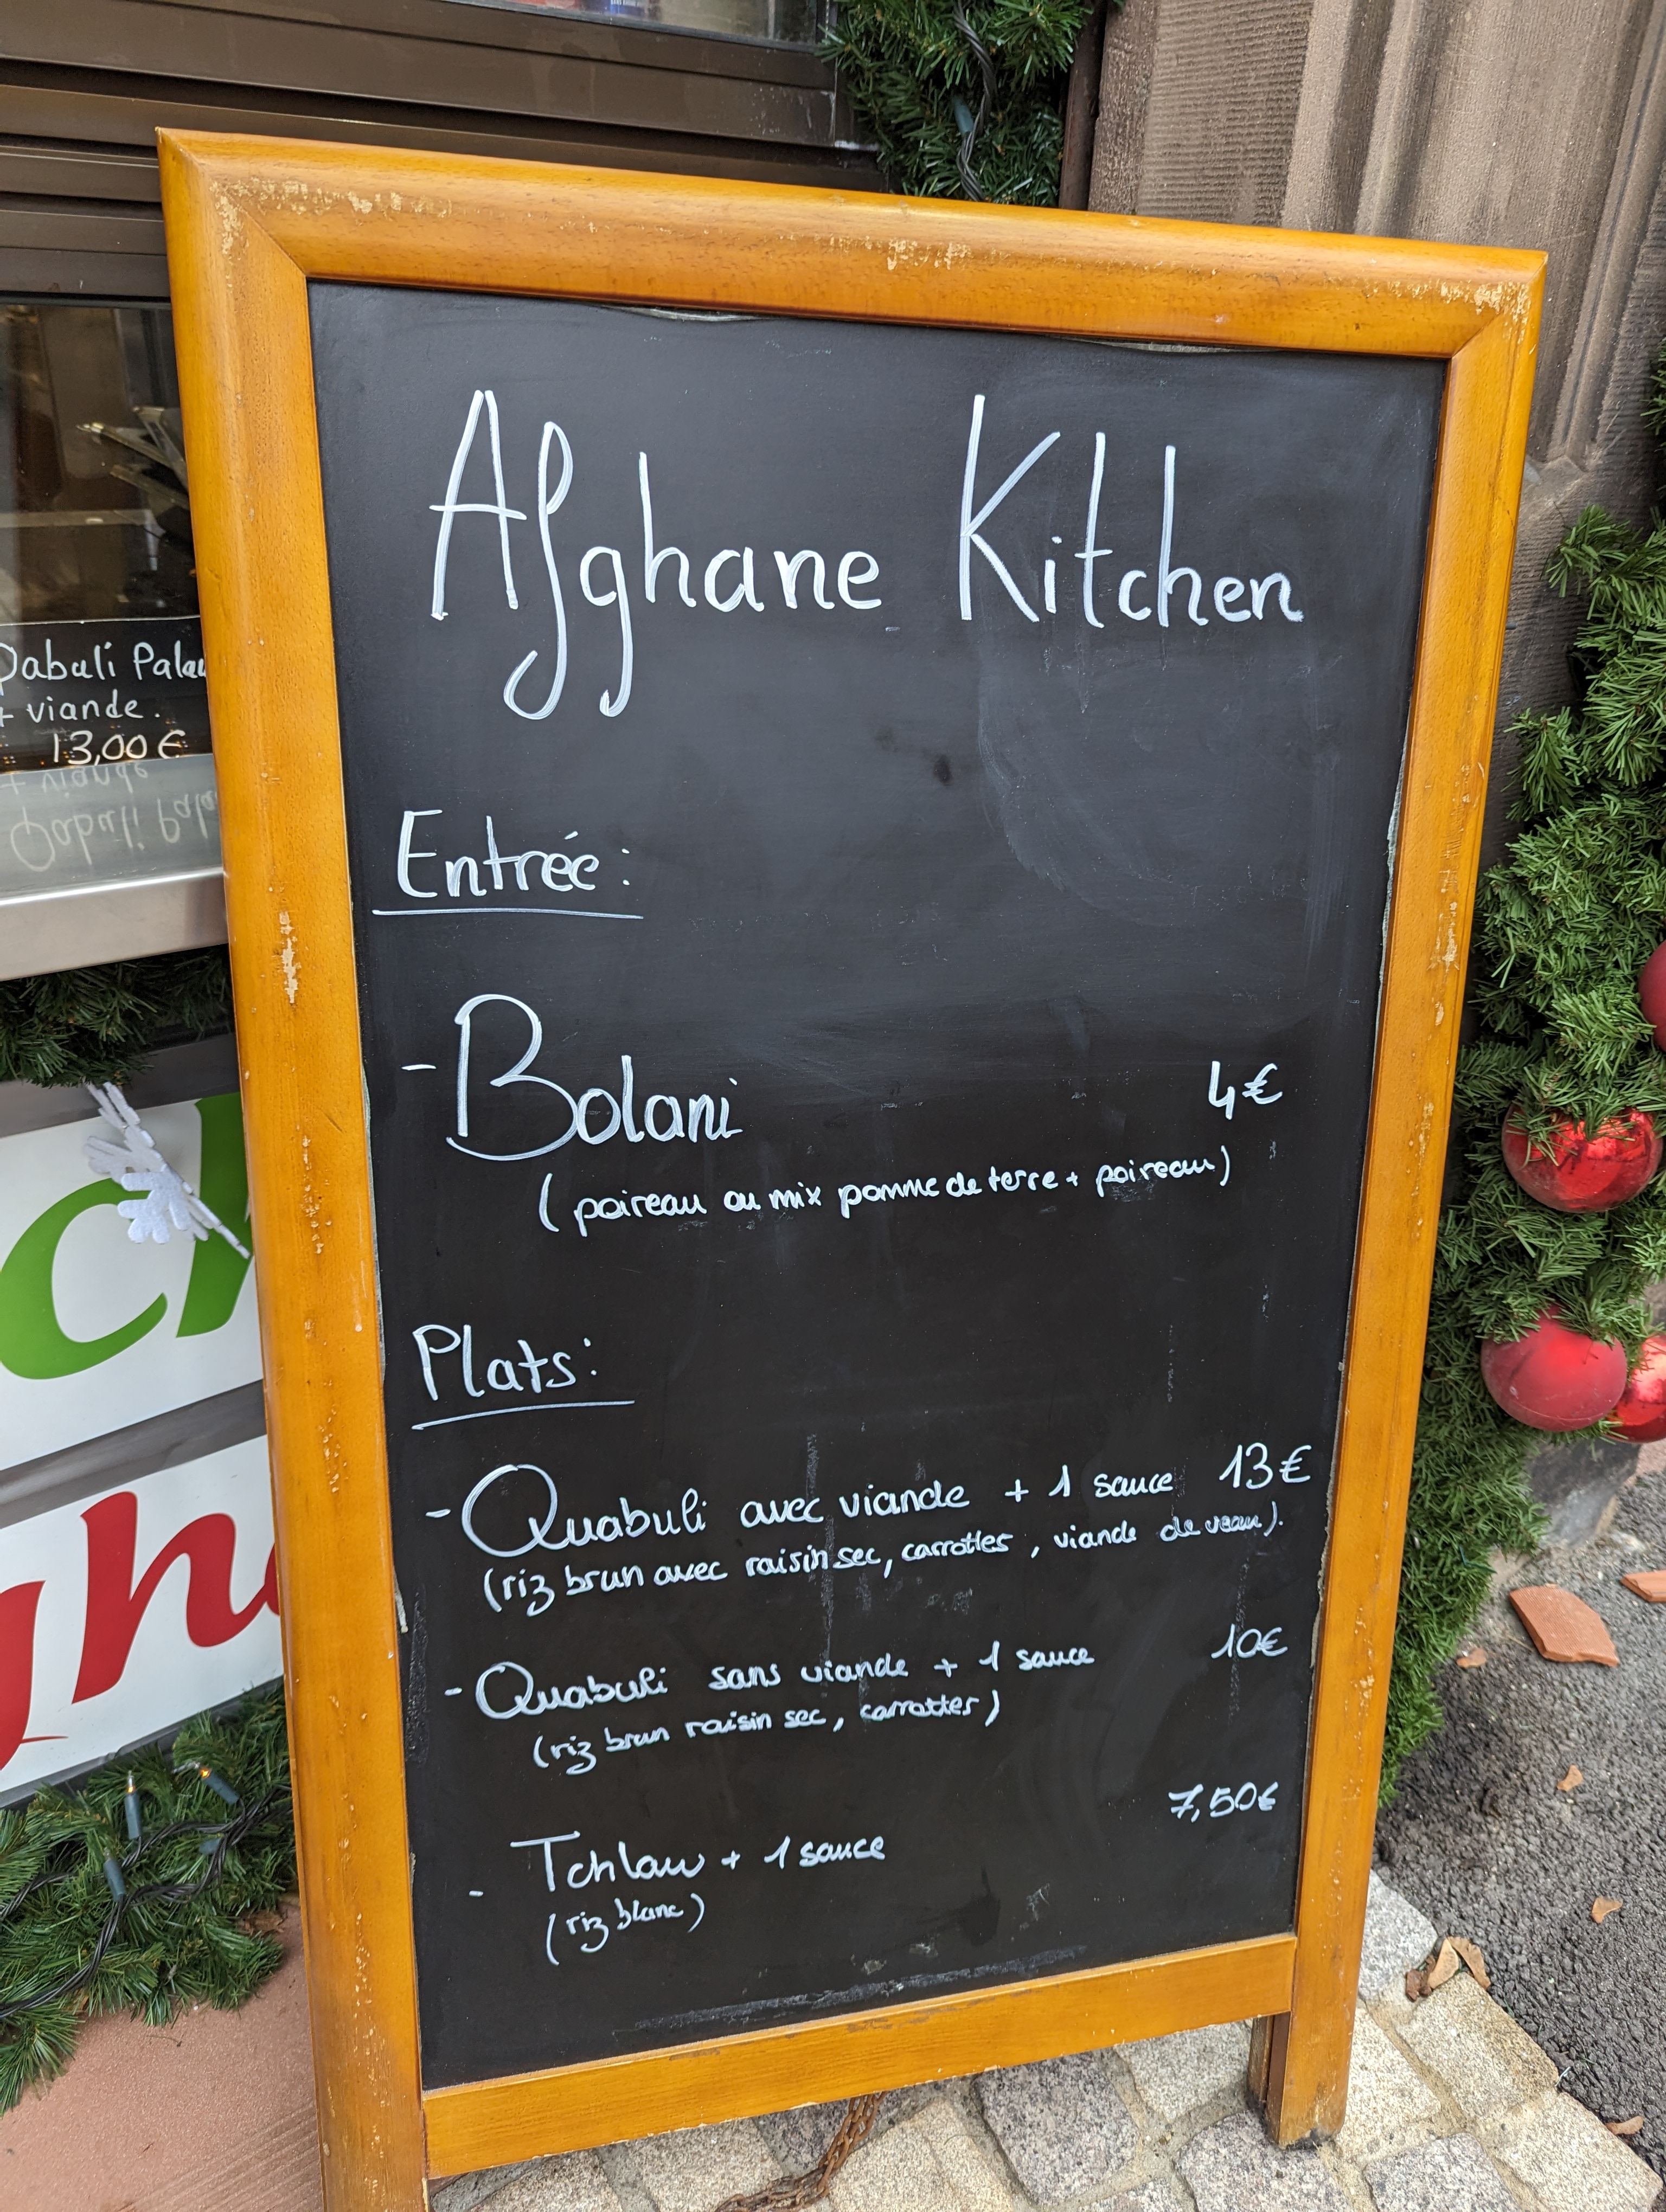 Afghane Kitchen
Entrée:
- Bolani 4€
(poireau ou mix pomme de terre + poireau)
Plats:
- Quabuli avec viande + 1 sauce 13€
(riz brun avec raisin sec, carrottes, viande de veau).
- Quabuli sans viande + 1 sauce 10€
(riz brun raisin sec, carrottes)
7,50€
- Tchlaw + 1 sauce
(riz blanc)
Qabuli Palau
+ viande.
13,00€